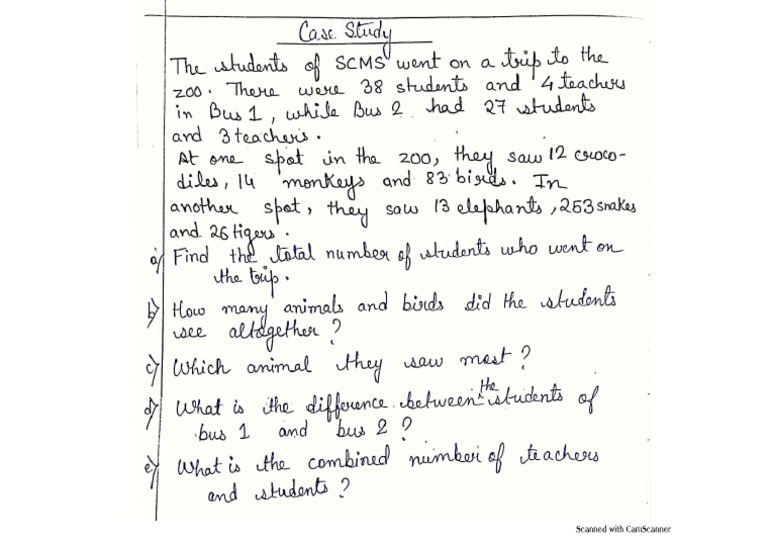 Case Study
The students of SCMS went on a trip to the
zoo. There were 38 students and 4 teachers
in Bus 1, while Bus 2 had 27 students
and 3 teachers.
At one spot in the zoo, they saw 12 croco-
diles, 14 monkeys and 83 birds. In
another spot, they saw 13 elephants, 253 snakes
and 26 tigers.
a) Find the total number of students who went on
the trip.
b) How many animals and birds did the students
see altogether?
c) Which animal they saw most?
d) What is the difference between the students of
bus 1 and bus 2?
e) What is the combined number of teachers
and students?
Scanned with CamScanner